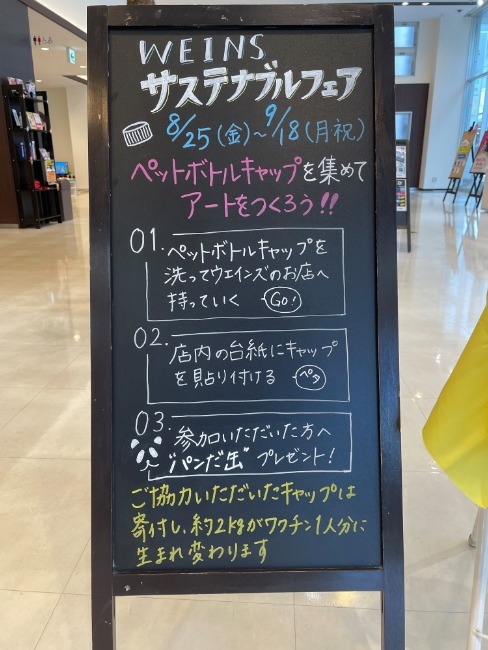 WEINS
サステナブルフェア
8/25(金)~9/18(月祝)
ペットボトルキャップを集めて
アートをつくろう!!
01.
ペットボトルキャップを
洗ってウエインズのお店へ
持っていく Go!
02.
店内の台紙にキャップ
を貼り付ける ペタ
03.
参加いただいた方へ
"パンだ缶"プレゼント!
ご協力いただいたキャップは
寄付し、約2kgがワクチン1人分に
生まれ変わります